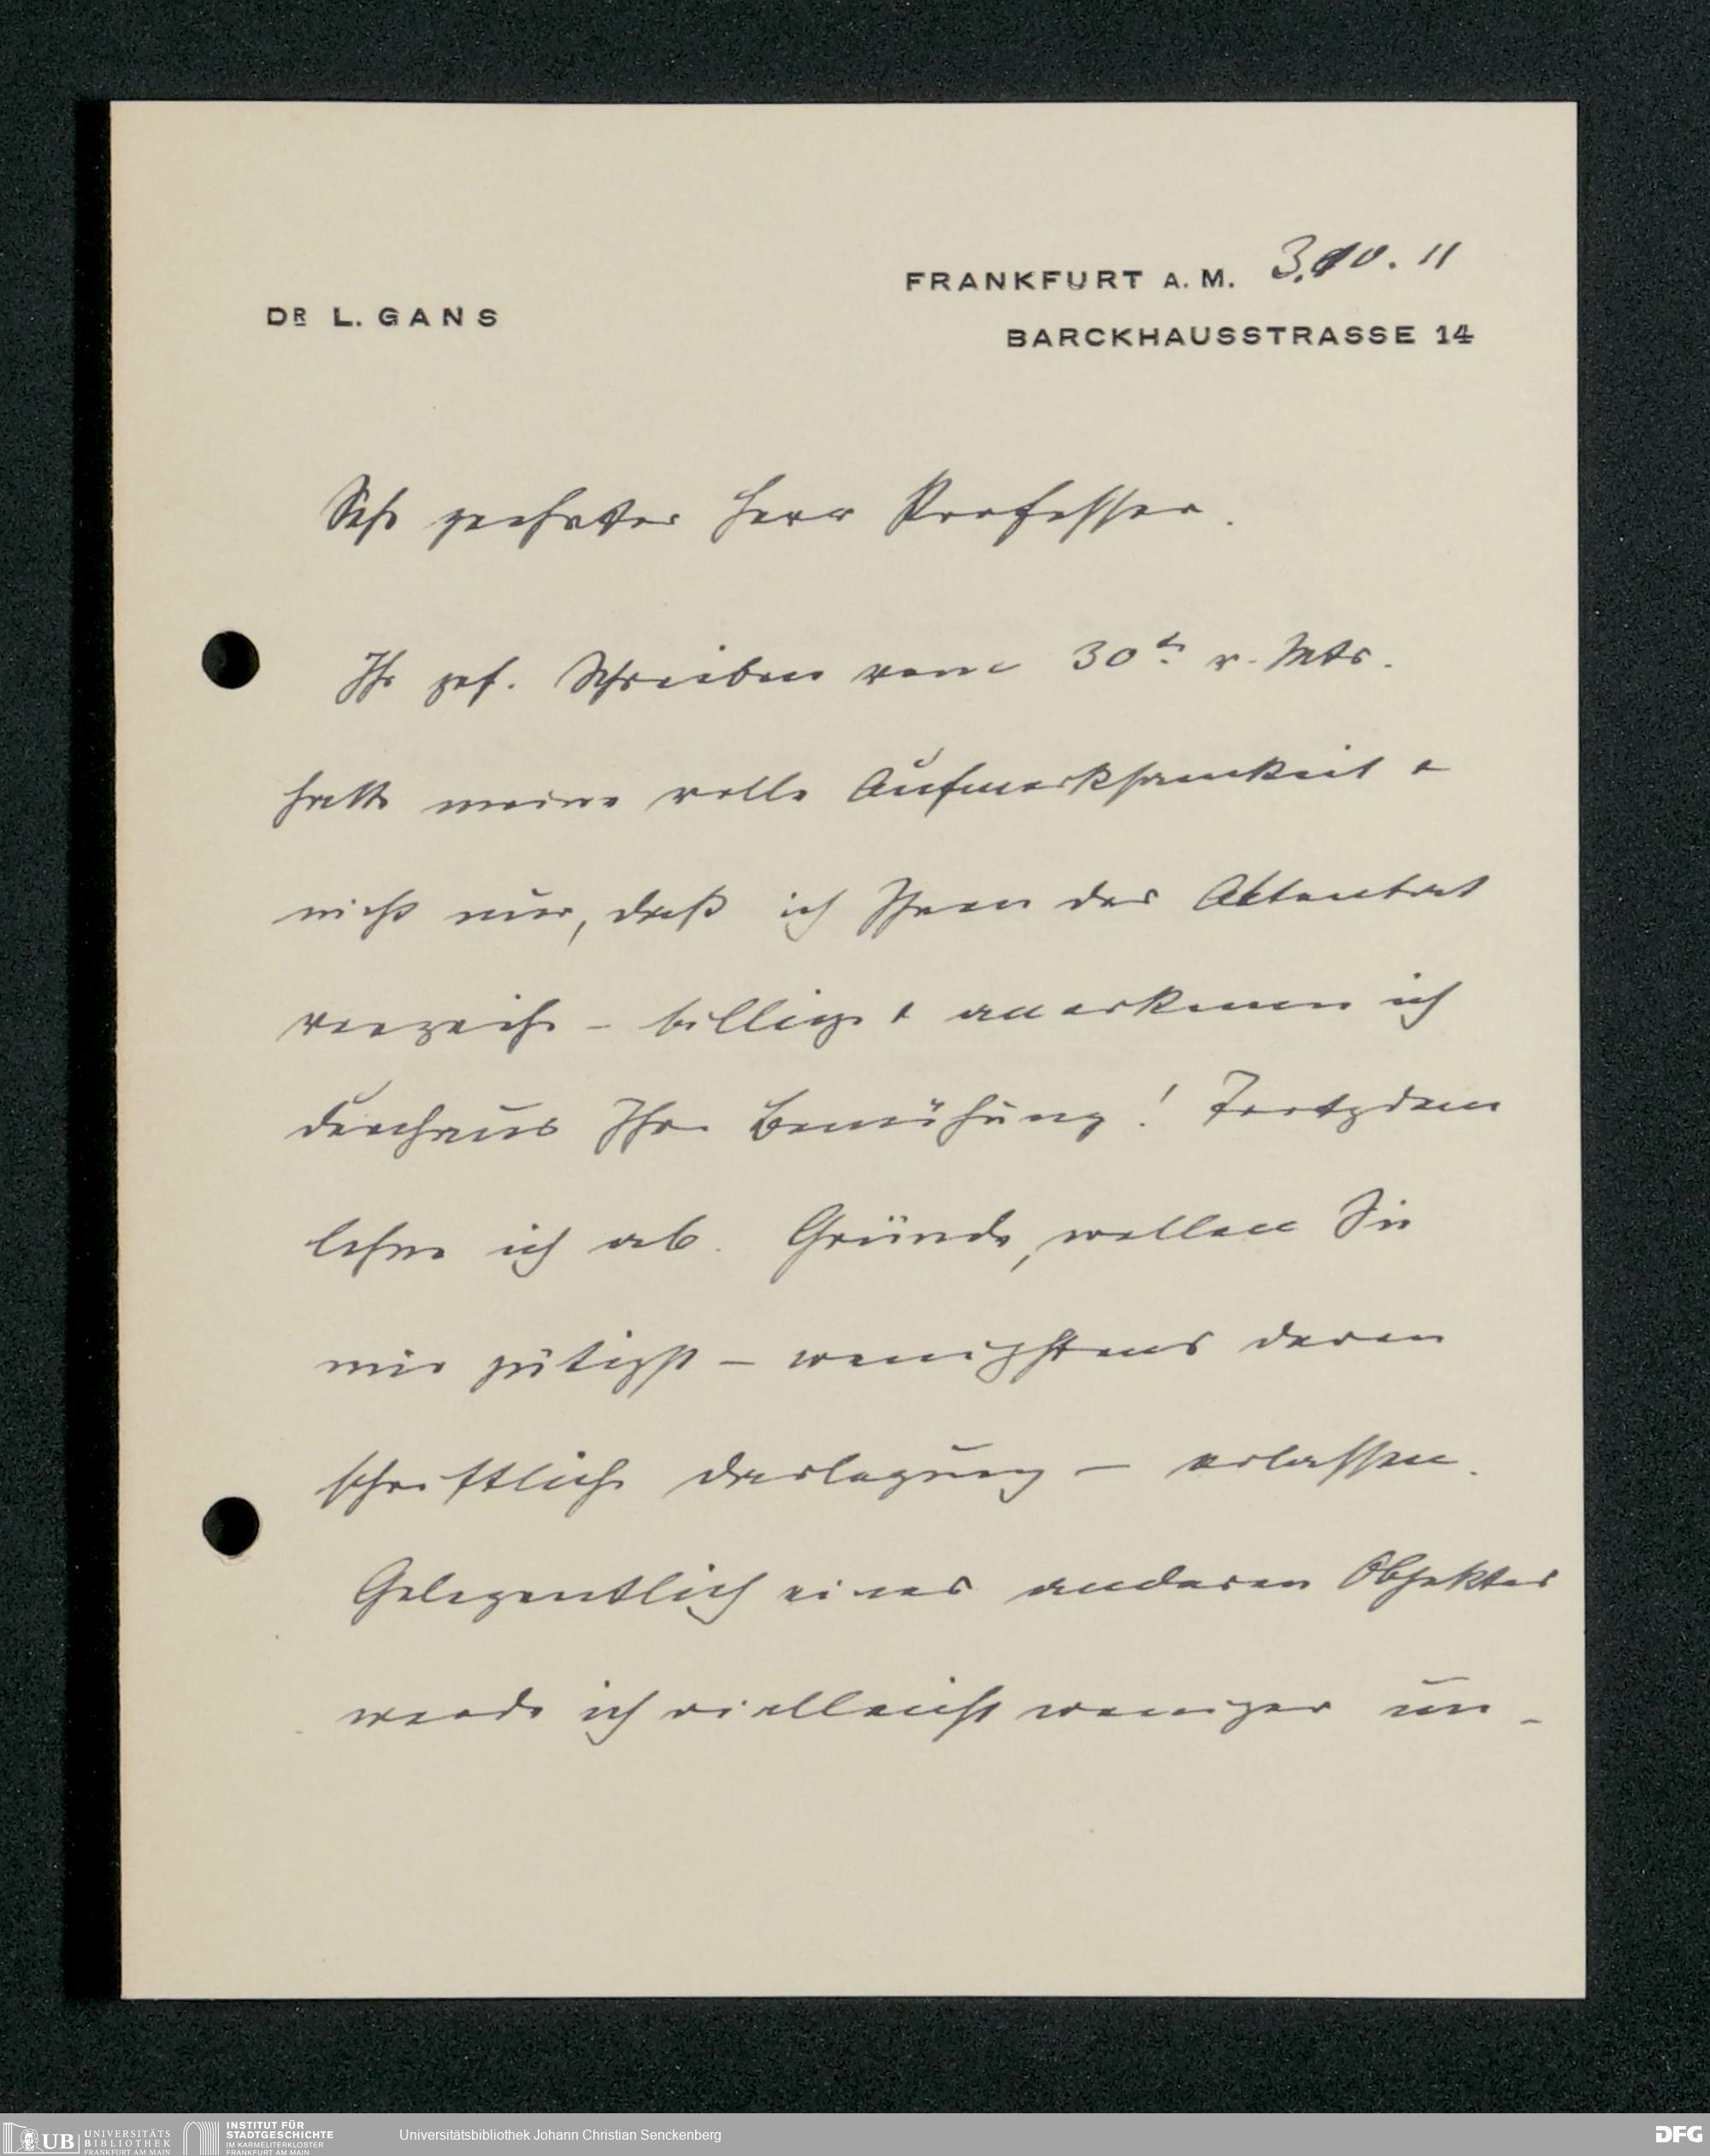 FRANKFURT A. M. 3.10.11
DR L. GANS
BARCKHAUSSTRASSE 14
Sehr geehrter Herr Professor.
Ihr gef. Schreiben vom 30ten v. Mts.
hatte meine volle Aufmerksamkeit &
nicht nur, daß ich Ihnen das Attentat
verzeihe – billige & anerkenne ich
durchaus Ihre Bemühung! Trotzdem
lehne ich ab. Gründe, wollen Sie
mir gütigst – wenigstens deren
schriftliche Darlegung – erlassen.
Gelegentlich eines anderen Objektes
werde ich vielleicht weniger un-
UB UNIVERSITÄTS
BIBLIOTHEK
FRANKFURT AM MAIN
INSTITUT FÜR
STADTGESCHICHTE
IM KARMELITERKLOSTER
FRANKFURT AM MAIN
Universitätsbibliothek Johann Christian Senckenberg
DFG